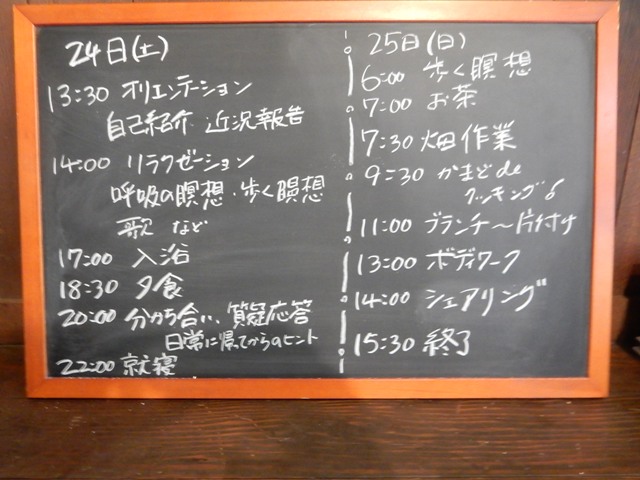 24日(土)
13:30 オリエンテーション
自己紹介・近況報告
14:00 リラクゼーション
呼吸の瞑想・歩く瞑想
歌 など
17:00 入浴
18:30 夕食
20:00 分かち合い、質疑応答
日常に帰ってからのヒント
22:00 就寝
25日(日)
6:00 歩く瞑想
7:00 お茶
7:30 畑作業
9:30 かまどde
クッキング
11:00 ブランチ〜片付け
13:00 ボディワーク
14:00 シェアリング
15:30 終了